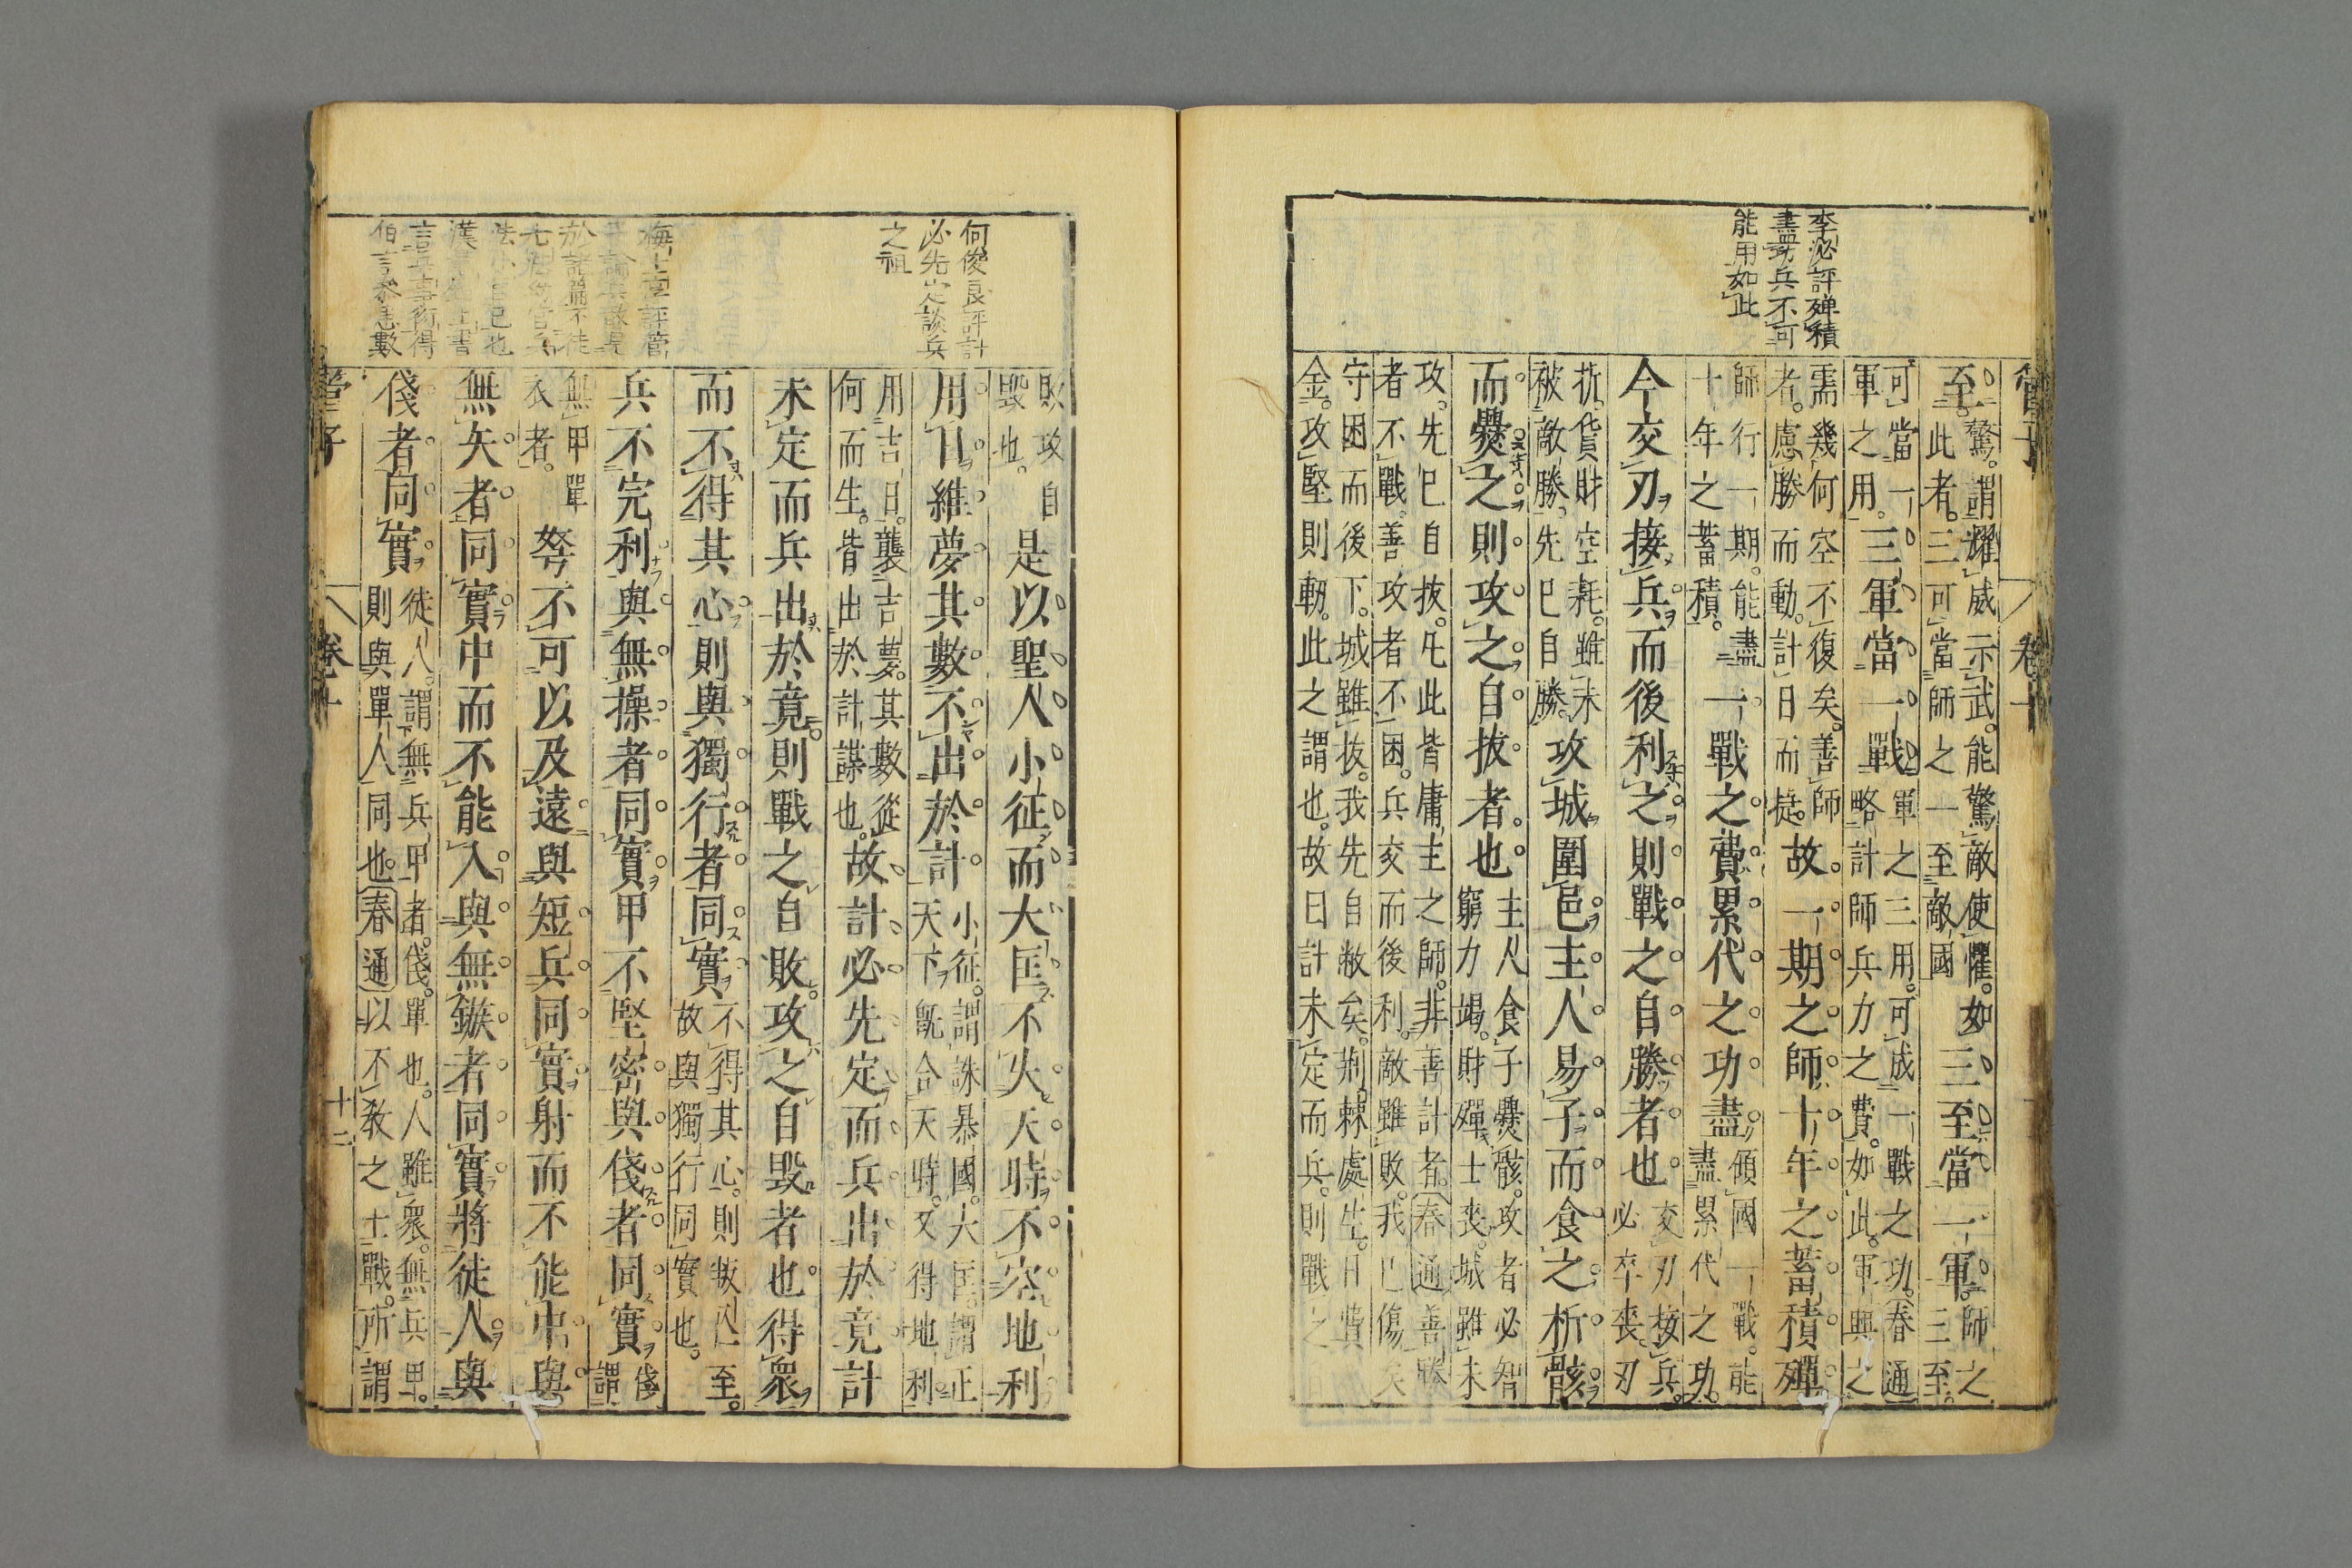 管子 卷十
李泌評殫積
盡功兵不可
能用如此
至驚。謂耀威示武。能驚敵使懼。如
此者。三可當師之一至敵國三至當一軍。師之
三至。
可當一
軍之用。三軍當一戰軍之三用。可成一戰之功。春通
略計師兵力之費。如此。軍興之
需幾何空不復矣。善師
者。慮勝而動。計日而㨗。故一期之師十年之蓄積殫
師行一期。能盡
十年之蓄積。一戰之費累代之功盡傾國一戰。能
盡累代之功。
今交刃接兵而後利之則戰之自勝者也交刃接兵。
必卒喪刃
折貨財空耗。雖未
被敵勝。先已自勝。攻城圍邑主人易子而食之析骸
而爨之則攻之自拔者也主人食子爨骸。攻者必智
窮力竭。財殫士喪。城雖未
攻。先已自拔。凡此皆庸主之師。非善計者。春通善勝
者不戰。善攻者不困。兵交而後利。敵雖敗。我已傷矣
守困而後下。城雖拔。我先自敝矣。荊棘處生。日費
金。攻堅則軔。此之謂也。故曰計未定而兵。則戰之
何俊良評計
必先定談兵
之祖
敗攻自
毀也。是以聖人小征而大匡不失天時不空地利
用日維夢其數不出於計小征。謂誅暴國。大匡。謂正
天下。既合天時。又得地利。
用吉日。襲吉夢。其數從
何而生。皆出於計謀也。故計必先定而兵出於竟計
未定而兵出於竟則戰之自敗攻之自毀者也得衆
而不得其心則與獨行者同實不得其心。則叛亡至。
故與獨行同實也。
兵不完利與無操者同實甲不堅密與俴者同實俴
謂
無甲單
衣者。弩不可以及遠與短兵同實射而不能中與
無矢者同實中而不能入與無鏃者同實將徒人與
俴者同實徒人。謂無兵甲者。俴。單也。人雖衆。無兵甲。
則與單人同也。春通以不教之士戰。所謂
梅士享評管
子論兵散見
於諸篇不徒
七法幼官兵
法小匡已也
漢晁錯上書
言兵事術得
伯言參患數
管子 卷十 十二